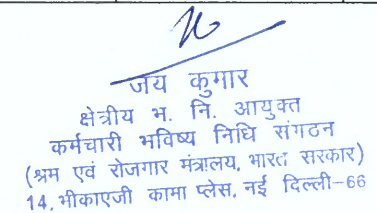 जय कुमार
क्षेत्रीय भ. नि. आयुक्त
कर्मचारी भविष्य निधि संगठन
(श्रम एवं रोजगार मंत्रालय, भारत सरकार)
14, भीकाएजी कामा प्लेस, नई दिल्ली-66